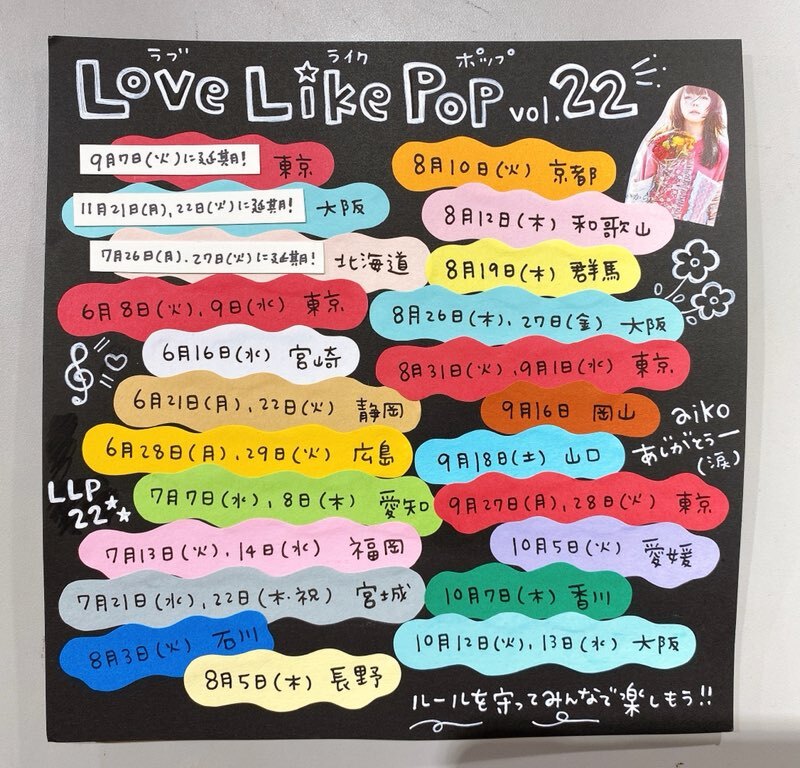 ラブ ライク ポップ
Love Like Pop vol.22
9月7日(火)に延期! 東京
11月21日(月),22日(火)に延期! 大阪
7月26日(月),27日(火)に延期! 北海道
6月8日(火),9日(水) 東京
6月16日(水) 宮崎
6月21日(月),22日(火) 静岡
6月28日(月),29日(火) 広島
7月7日(水),8日(木) 愛知
7月13日(火),14日(水) 福岡
7月21日(水),22日(木・祝) 宮城
8月3日(火) 石川
8月5日(木) 長野
LLP
22
8月10日(火) 京都
8月12日(木) 和歌山
8月19日(木) 群馬
8月26日(木),27日(金) 大阪
8月31日(火),9月1日(水) 東京
9月16日 岡山
9月18日(土) 山口
9月27日(月),28日(火) 東京
10月5日(火) 愛媛
10月7日(木) 香川
10月12日(火),13日(水) 大阪
aiko
ありがとうー
(涙)
ルールを守ってみんなで楽しもう!!